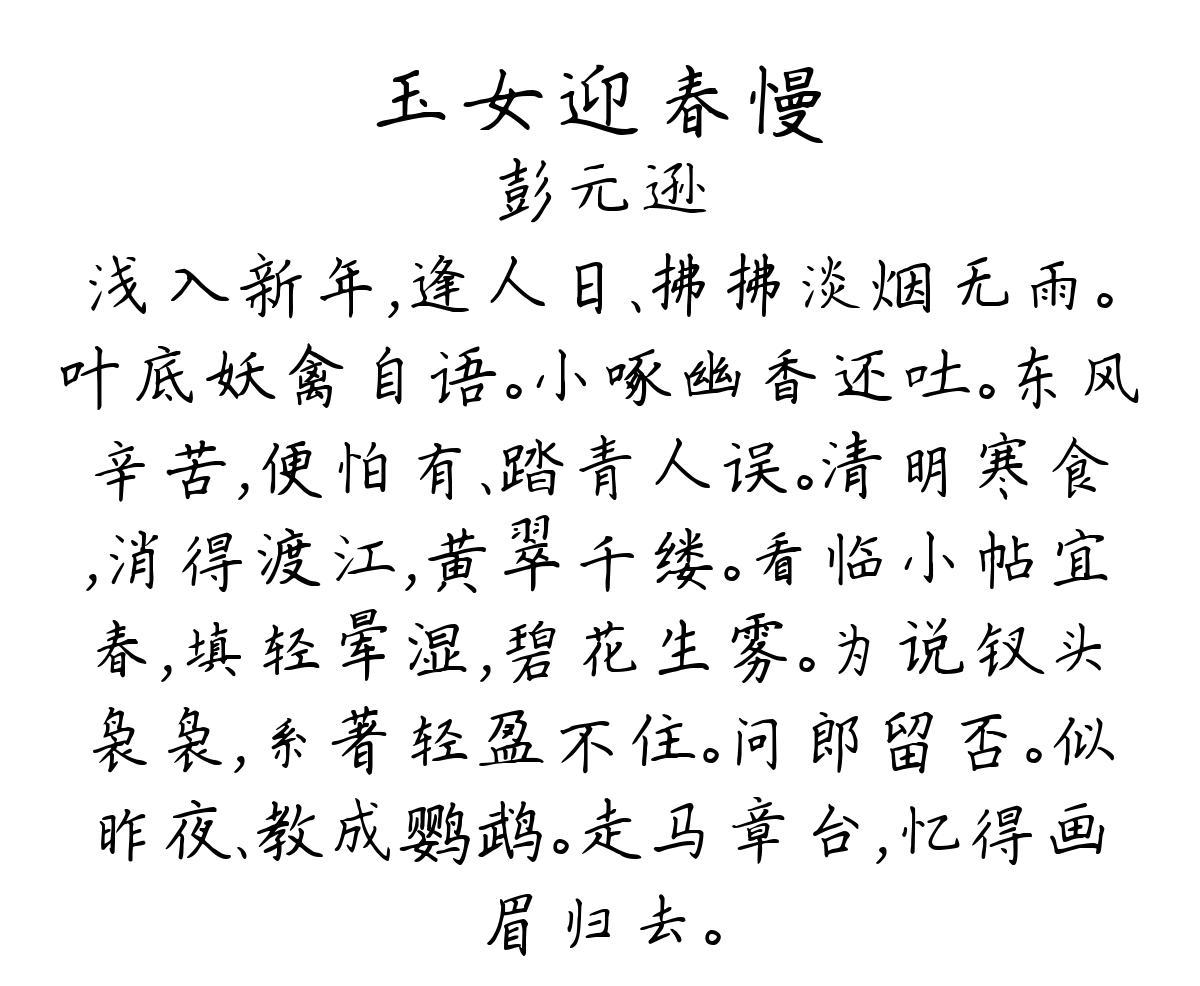 玉女迎春慢
彭元逊
浅入新年,逢人日、拂拂淡烟无雨。
叶底妖禽自语。小啄幽香还吐。东风
辛苦,便怕有、踏青人误。清明寒食
,消得渡江,黄翠千缕。看临小帖宜
春,填轻晕湿,碧花生雾。为说钗头
袅袅,系著轻盈不住。问郎留否。似
昨夜、教成鹦鹉。走马章台,忆得画
眉归去。